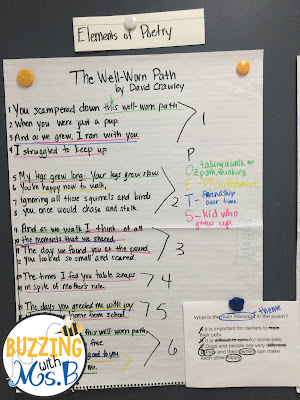 Elements of Poetry
The Well-Worn Path
by David Crawley
1 You scampered down this well-worn path
2 When you were just a pup.
3 And as we grew, I ran with you.
4 I struggled to keep up.
1
5 My legs grew long. Your legs grew slow.
6 You're happy now to walk,
7 Ignoring all those squirrels and birds
8 you once would chase and stalk.
2
9 And as we walk I think of all
10 the moments that we shared.
11 The day we found you at the pound,
12 You looked so small and scared.
3
The times I fed you table scraps
in spite of mother's rule.
4
The days you greeted me with joy
home from school.
5
this well-worn path
free
good to you
me.
6
P
O - taking a walk on a path, thinking
E - bittersweet
T - friendship over time
S - kid who grew up.
theme
What is the main message in the poem?
It is important for owners to train their pets.
It is difficult to care for some pets.
Dogs and people are very different.
Pets and their owners can make each other happy.
BUZZING
with
Ms. B